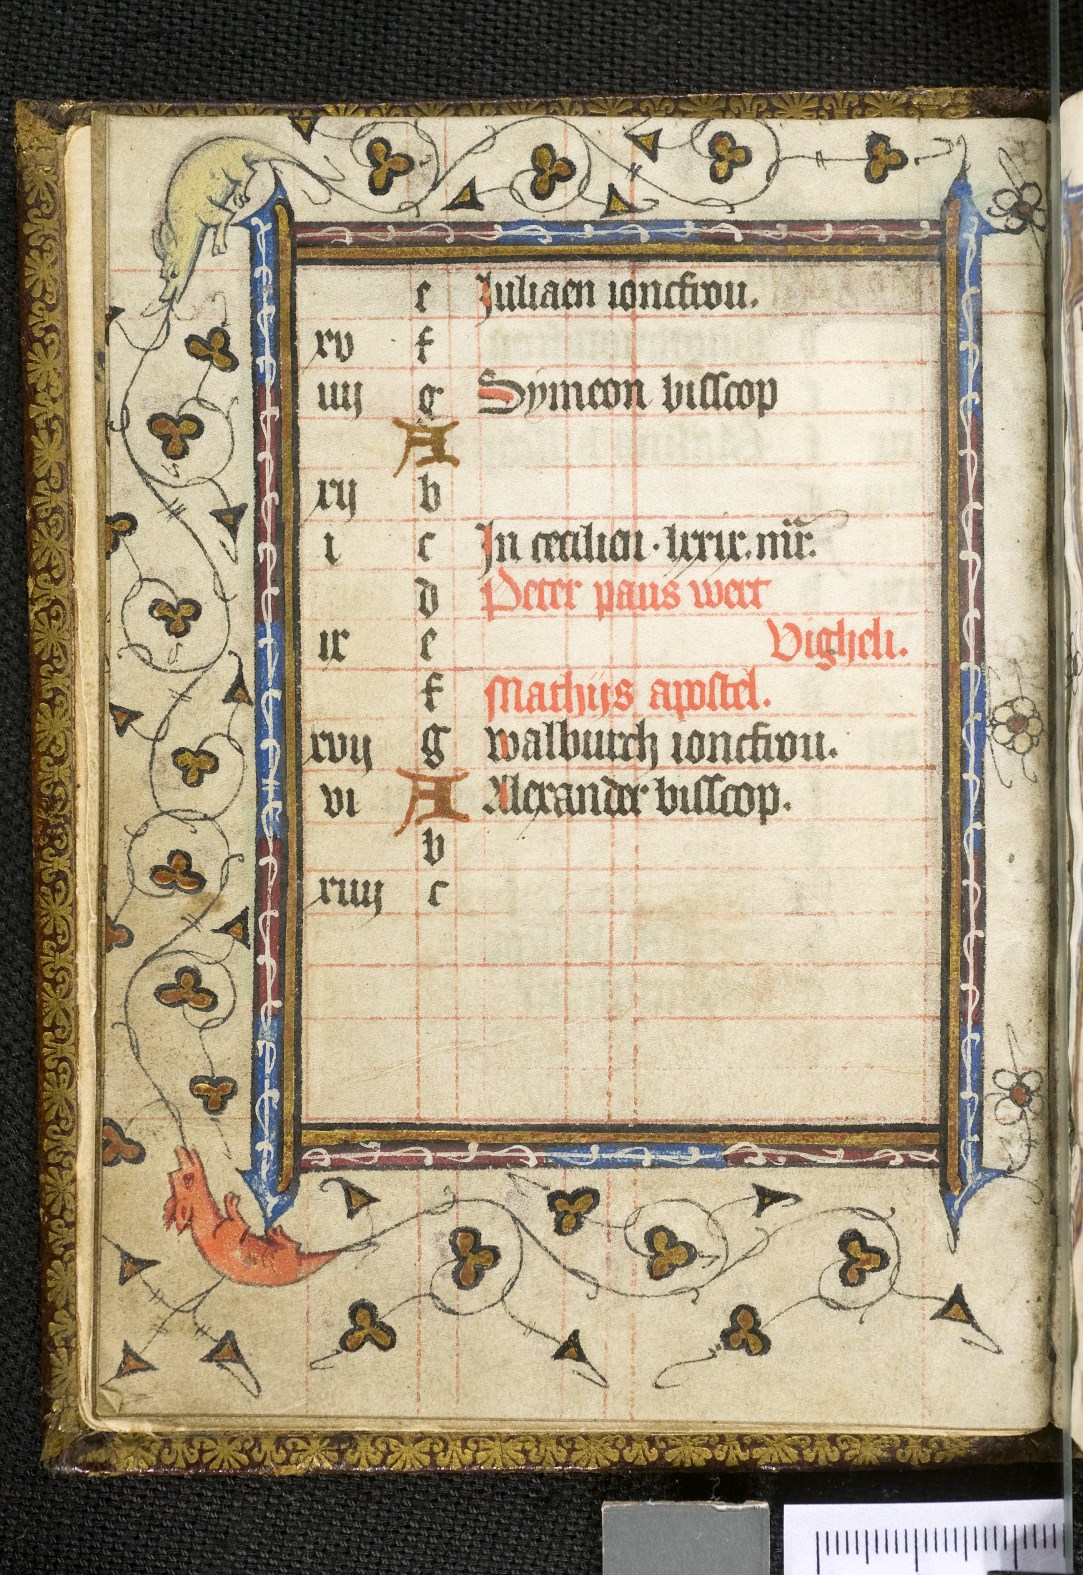 e Juliaen ioncfrou.
xv f
iiij g Symeon bisscop
A
xij b
i c In cecilien · lxxix. mr̄.
d Peter paus wert
ix e Vigheli.
f Mathijs apostel.
xvij g walburch ioncfrou.
vi A Alexander bisscop.
b
xiiij c